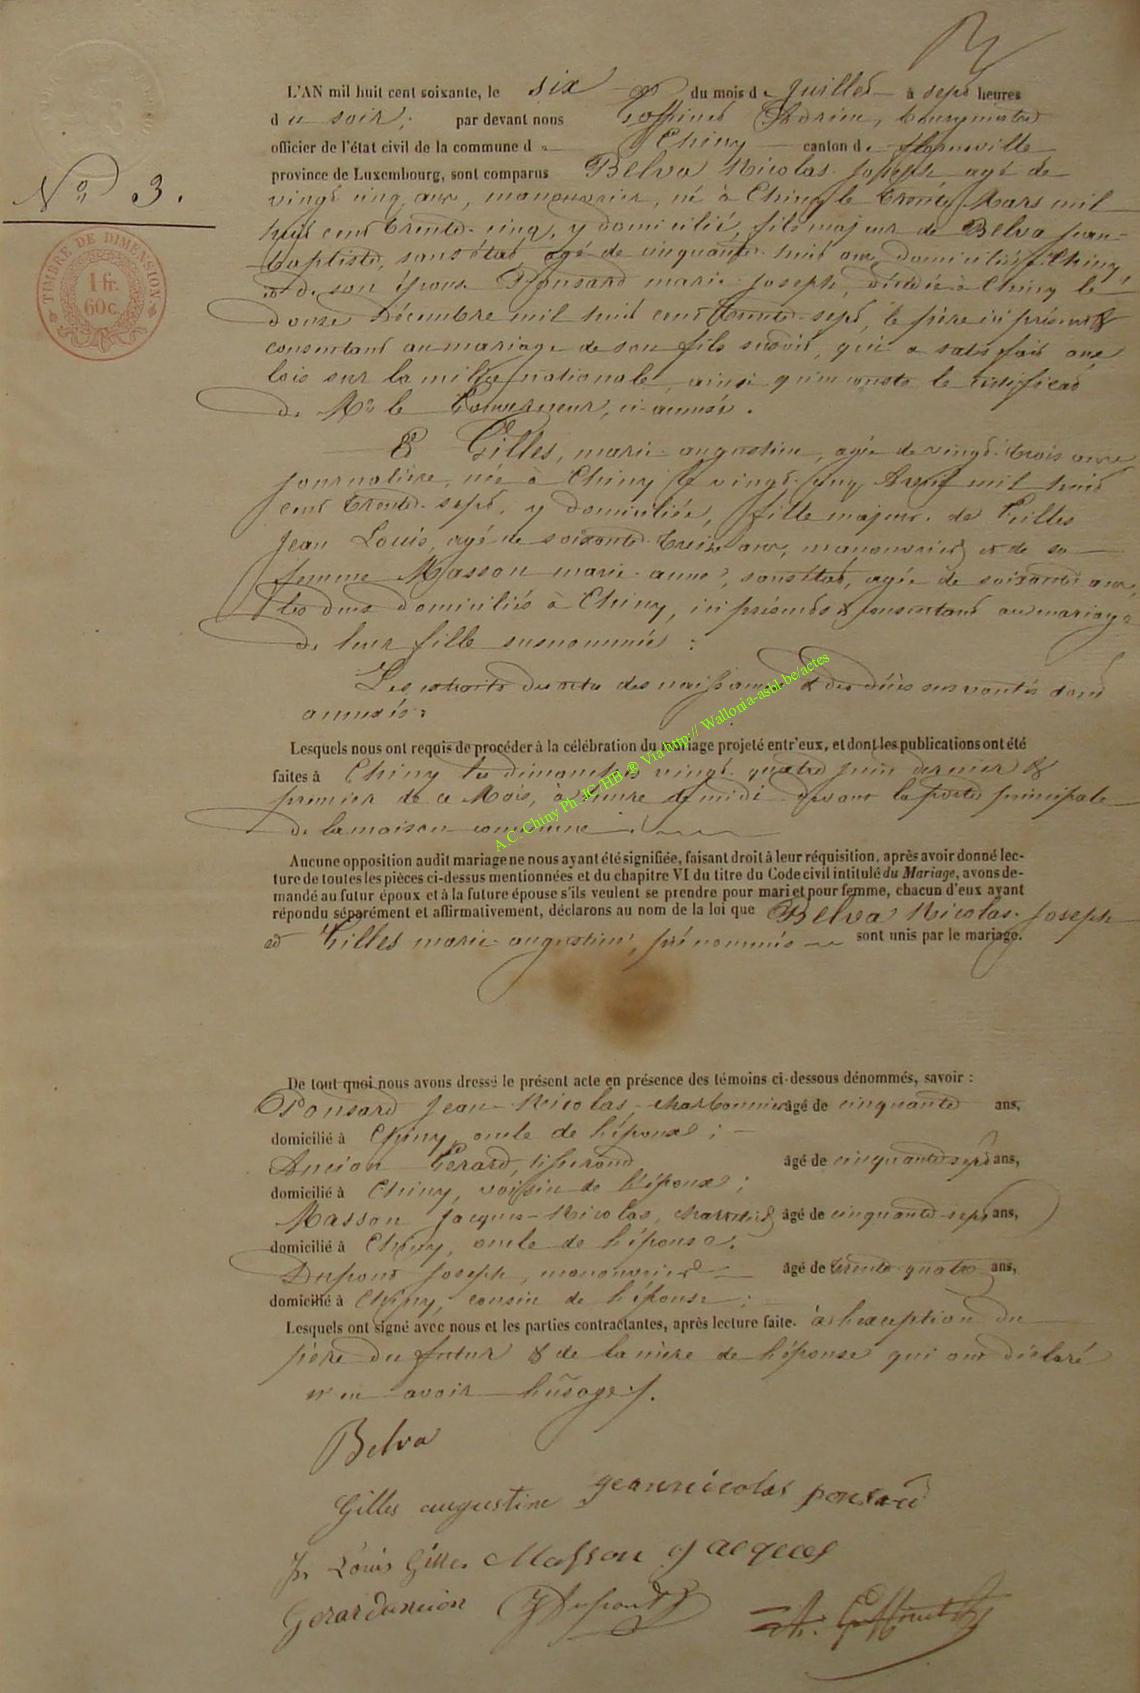 L'AN mil huit cent soixante, le six du mois de Juillet à sept heures
du soir; par devant nous Goffinet Adrien, bourgmestre
officier de l'état civil de la commune de Chiny canton de florenville
province de Luxembourg, sont comparus Belva Nicolas-Joseph agé de
N° 3.
vingt cinq ans, manouvrier, né à Chiny le trente Mars mil
huit cent trente-cinq, y domicilié, fils majeur de Belva Jean-
baptiste, sans état, agé de cinquante huit ans, domicilié à Chiny,
TIMBRE DE DIMENSION
1 fr.
60c.
et de son épouse Ponsard marie-joseph, décédée à Chiny le
douze Décembre mil huit cent trente-sept, le père ici présent &
consentant au mariage de son fils susdit, qui a satisfait aux
lois sur la milice nationale, ainsi qu'en conste le certificat
de Mr le Gouverneur, ci-annexé.
& Gilles, marie-augustine, agée de vingt-trois ans,
journalière, née à Chiny le vingt-cinq Avril mil huit
cent trente-sept, y domiciliée, fille majeure de Gilles
Jean Louis, agé de soixante-treize ans, manouvrier, et de sa
femme Masson marie-anne, sans état, agée de soixante ans,
les deux domiciliés à Chiny, ici présents & consentant au mariage
de leur fille susnommée :
Les extraits des actes des naissances & des décès sus vantés sont
annexés.
Lesquels nous ont requis de procéder à la célébration du mariage projeté entr'eux, et dont les publications ont été
faites à Chiny les dimanches vingt-quatre juin dernier &
premier de ce Mois, à heure de midi devant la porte principale
de la maison commune.
Aucune opposition audit mariage ne nous ayant été signifiée, faisant droit à leur réquisition, après avoir donné lec-
ture de toutes les pièces ci-dessus mentionnées et du chapitre VI du titre du Code civil intitulé du Mariage, avons de-
mandé au futur époux et à la future épouse s'ils veulent se prendre pour mari et pour femme, chacun d'eux ayant
répondu séparément et affirmativement, déclarons au nom de la loi que Belva Nicolas-Joseph
et Gilles marie-augustine, prénommés sont unis par le mariage.
De tout quoi nous avons dressé le présent acte en présence des témoins ci-dessous dénommés, savoir :
Ponsard Jean-Nicolas, charbonnier âgé de cinquante ans,
domicilié à Chiny, oncle de l'époux;
Ancion Gérard, tisserand âgé de cinquante sept ans,
domicilié à Chiny, voisin de l'époux;
Masson Jacques-Nicolas, âgé de cinquante-sept ans,
domicilié à Chiny, oncle de l'épouse.
Dupont Joseph, manouvrier âgé de trente quatre ans,
domicilié à Chiny, cousin de l'épouse;
Lesquels ont signé avec nous et les parties contractantes, après lecture faite. à l'exception du
père du futur & de la mère de l'épouse qui ont déclaré
n'en avoir l'usage.
Belva
Gilles augustine jeannicolas ponsard
Jn Louis Gilles Masson jacques
Gerard ancion J Dupont A. Goffinet
A.C. Chiny Ph JC/HB ® Via http:// Wallonia-asbl.be/actes